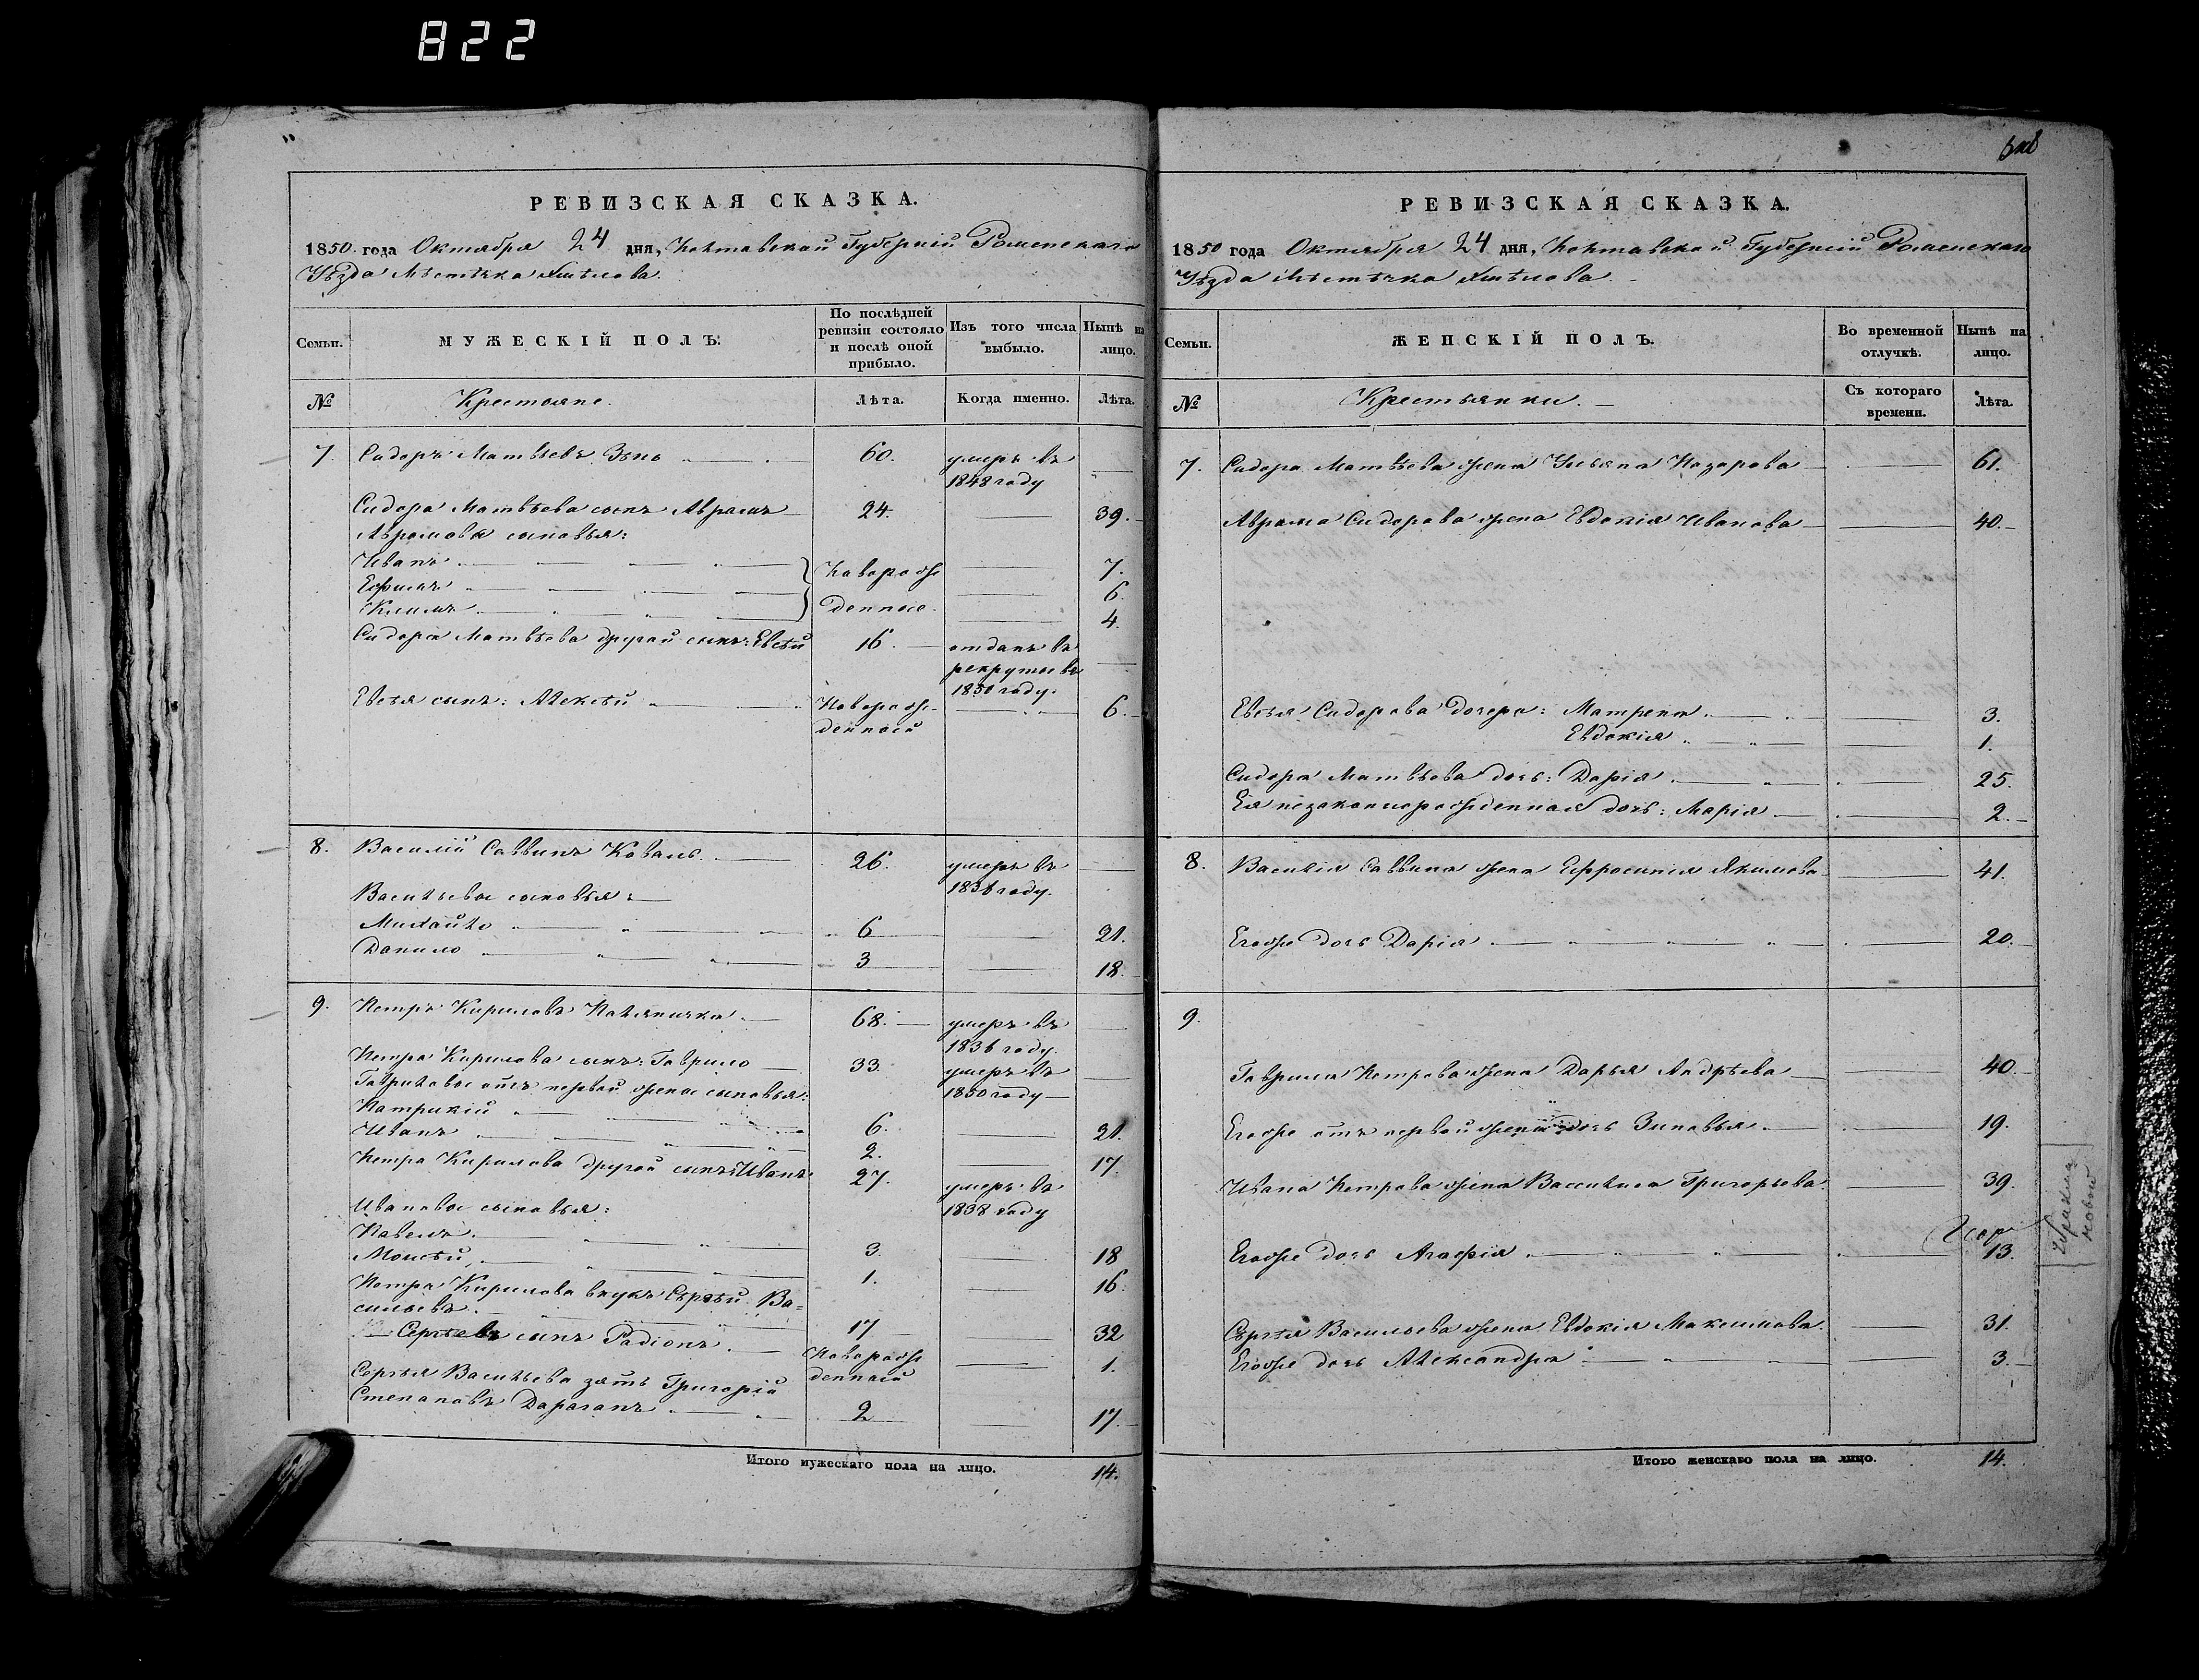 822
РЕВИЗСКАЯ СКАЗКА.
1850 года Октября 24 дня, Полтавской Губерніи Роменскаго
Уѣзда Мѣстечка Хмѣлова.
Семьи.
МУЖЕСКІЙ ПОЛЪ.
По послѣдней ревизіи состояло и послѣ оной прибыло.
Изъ того числа выбыло.
Нынѣ на лицо.
№
Крестьяне.
Лѣта.
Когда именно.
Лѣта.
7. Сидоръ Матвѣевъ Зэнь 60. умеръ въ
1848 году
Сидора Матвѣева сынъ Аврамъ 24. 39.
Аврамовы сыновья:
Иванъ Новорож 7.
Ефимъ 6.
Климъ денные. 4.
Сидора Матвѣева другой сынъ: Евсѣй 16 отданъ въ
рекруты въ
1850 году.
Евсѣя сынъ: Алексѣй Новорож- 6.
денный
8. Василій Саввинъ Коваль. 26. умеръ въ
1836 году.
Васильевы сыновья:
Михайло 6 21.
Данило 3 18.
9. Петръ Кириловъ Паляничка 68. умеръ въ
1836 году.
Петра Кирилова сынъ: Гаврило 33. умеръ въ
Гавриловы отъ первой жены сыновья: 1850 году
Патрикій 6. 21.
Иванъ 2. 17.
Петра Кирилова другой сынъ: Иванъ 27. умеръ въ
Ивановы сыновья: 1838 году
Павелъ 3. 18
Моисѣй 1. 16.
Петра Кирилова внукъ Сергѣй Ва-
сильевъ. 17 32
Сергѣевъ сынъ Радіонъ Новорож 1.
денный
Сергѣя Васильева зять Григорій
Степановъ Дараганъ 2 17.
Итого мужескаго пола на лицо. 14.
РЕВИЗСКАЯ СКАЗКА.
1850 года Октября 24 дня, Полтавской Губерніи Роменскаго
Уѣзда Мѣстечка Хмѣлова.
Семьи.
ЖЕНСКІЙ ПОЛЪ.
Во временной отлучкѣ.
Нынѣ на лицо.
№
Крестьянки.
Съ котораго времени.
Лѣта.
7. Сидора Матвѣева жена Ульяна Назарова 61.
Аврама Сидорова жена Евдокія Иванова 40.
Евсѣя Сидорова дочери: Матрена 3.
Евдокія 1.
Сидора Матвѣева дочь: Дарія 25.
Ея незаконнорожденная дочь: Марія 2.
8. Василія Саввина жена Ефросинія Якимова 41.
Егоже дочь Дарія 20.
9.
Гаврила Петрова жена Дарья Андрѣева 40.
Егоже отъ первой жены дочь Зиновья 19.
Ивана Петрова жена Василиса Григорьева. 39.
Егоже дочь Агафія 13.
Сергѣя Васильева жена Евдокія Максимова 31.
Егоже дочь Александра 3.
Итого женскаго пола на лицо. 14.